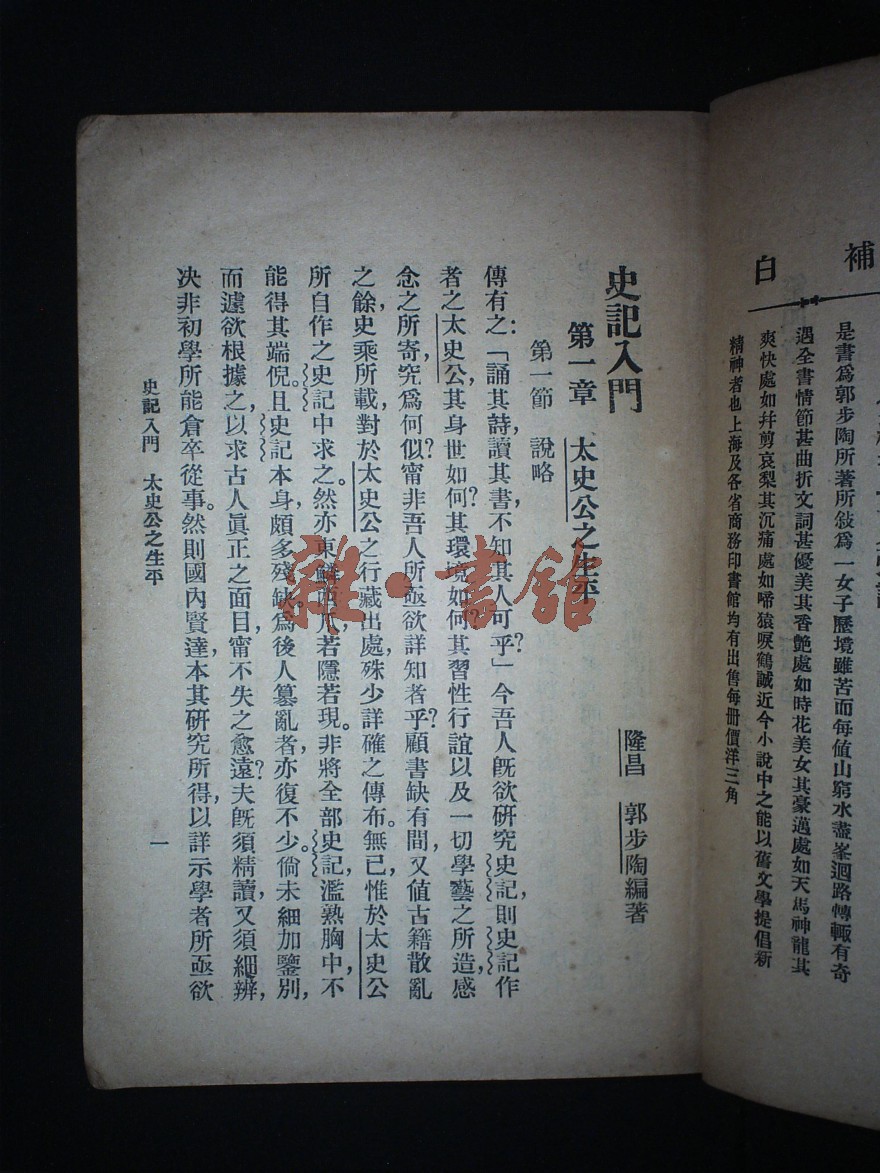 補白
是書爲郭步陶所著所敍爲一女子歷境雖苦而每値山窮水盡峯迴路轉輒有奇
遇全書情節甚曲折文詞甚優美其香艷處如時花美女其豪邁處如天馬神龍其
爽快處如幷剪哀梨其沉痛處如啼猿唳鶴誠近今小說中之能以舊文學提倡新
精神者也上海及各省商務印書館均有出售每册價洋三角
史記入門
隆昌 郭步陶編著
第一章 太史公之生平
第一節 說略
傳有之：「誦其詩，讀其書，不知其人可乎？」今吾人旣欲研究史記，則史記作
者之太史公，其身世如何？其環境如何？其習性行誼以及一切學藝之所造感
念之所寄，究爲何似？甯非吾人所亟欲詳知者乎？顧書缺有間，又値古籍散亂
之餘，史乘所載，對於太史公之行藏出處，殊少詳確之傳布。無已，惟於太史公
所自作之史記中求之。然亦東鱗西爪，若隱若現。非將全部史記濫熟胸中，不
能得其端倪。且史記本身，頗多殘缺。爲後人簒亂者，亦復不少。倘未細加鑒別，
而遽欲根據之，以求古人眞正之面目，甯不失之愈遠？夫旣須精讀，又須細辨，
决非初學所能倉卒從事。然則國內賢達，本其研究所得，以詳示學者，所亟欲
史記入門 太史公之生平
一
雜·書館